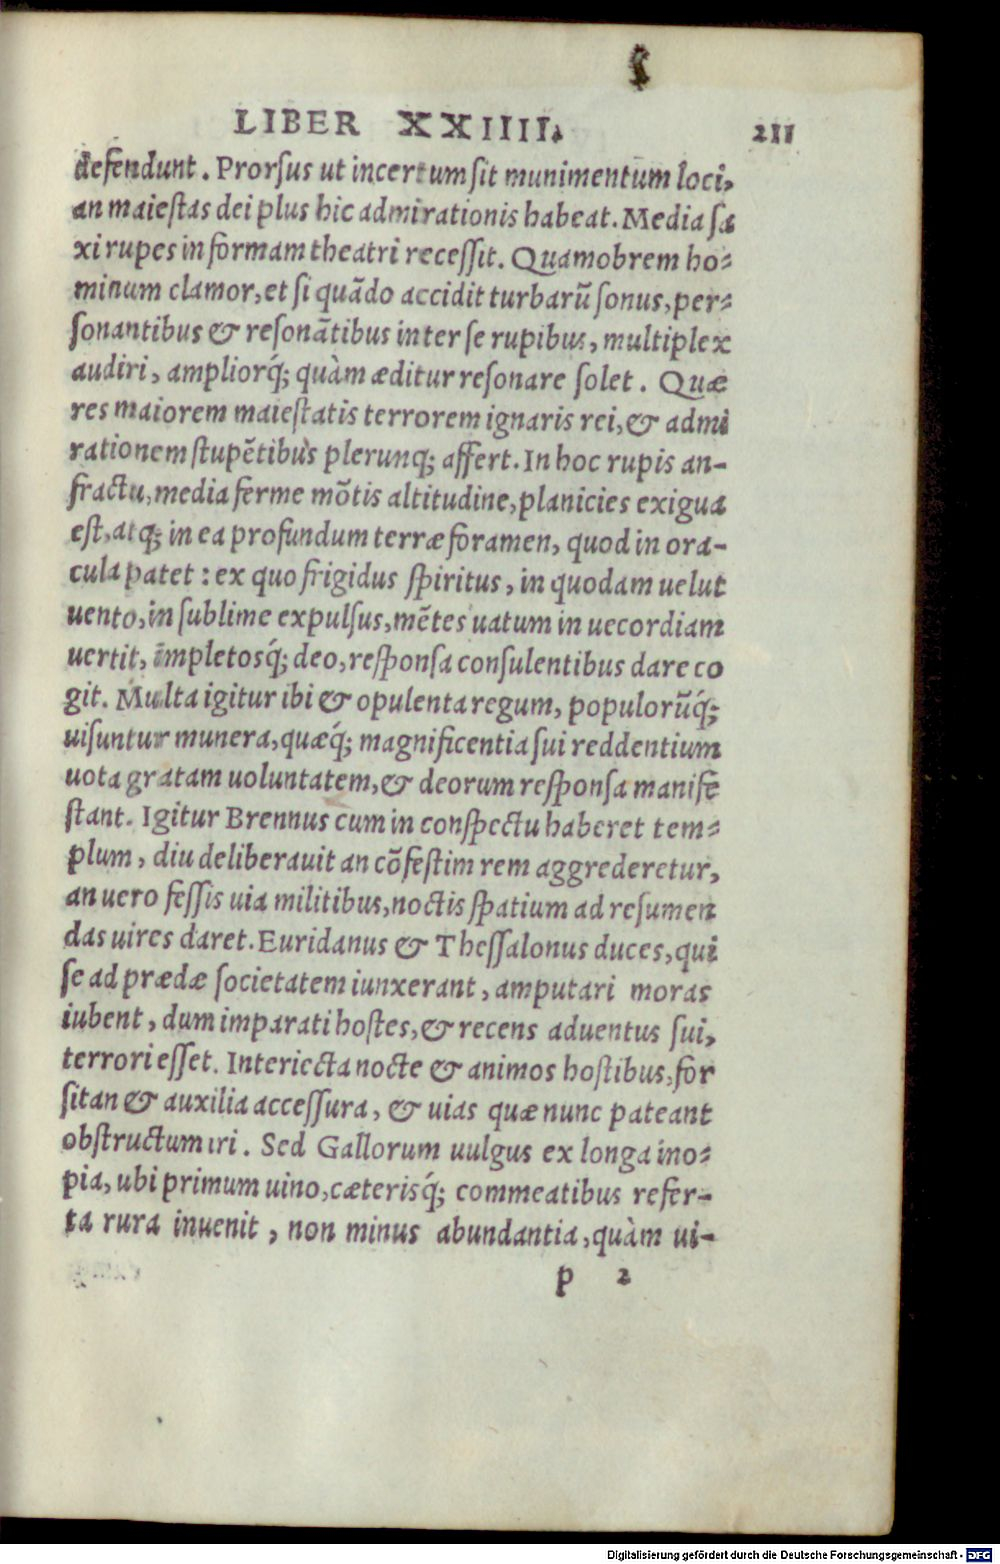 LIBER XXIIII. 211
defendunt. Prorſus ut incertum ſit munimentum loci,
an maieſtas dei plus hic admirationis habeat. Media ſa
xi rupes in formam theatri receſſit. Quamobrem ho⸗
minum clamor, et ſi quãdo accidit turbarũ ſonus, per⸗
ſonantibus & reſonãtibus inter ſe rupibus, multiplex
audiri, ampliorq́; quàm æditur reſonare ſolet. Quæ
res maiorem maieſtatis terrorem ignaris rei, & admi
rationem ſtupẽtibus plerunq; affert. In hoc rupis an-
fractu, media ferme mõtis altitudine, planicies exigua
eſt, atq; in ea profundum terræ foramen, quod in ora-
cula patet: ex quo frigidus ſpiritus, in quodam uelut
uento, in ſublime expulſus, mẽtes uatum in uecordiam
uertit, impletosq́; deo, reſponſa conſulentibus dare co
git. Multa igitur ibi & opulenta regum, populorũq́;
uiſuntur munera, quæq́; magnificentia ſui reddentium
uota gratam uoluntatem, & deorum reſponſa manife
ſtant. Igitur Brennus cum in conſpectu haberet tem⸗
plum, diu deliberauit an cõfeſtim rem aggrederetur,
an uero feſſis uia militibus, noctis ſpatium ad reſumen
das uires daret. Euridanus & Theſſalonus duces, qui
ſe ad prædæ ſocietatem iunxerant, amputari moras
iubent, dum imparati hoſtes, & recens aduentus ſui,
terrori eſſet. Interiecta nocte & animos hoſtibus, for
ſitan & auxilia acceſſura, & uias quæ nunc pateant
obſtructum iri. Sed Gallorum uulgus ex longa ino⸗
pia, ubi primum uino, cæterisq́; commeatibus refer-
ta rura inuenit, non minus abundantia, quàm ui-
p 2
Digitalisierung gefördert durch die Deutsche Forschungsgemeinschaft - DFG